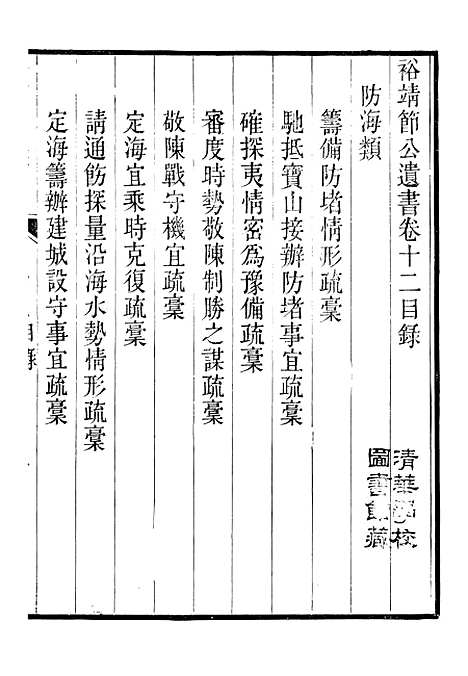 裕靖節公遺書卷十二目錄
清華學校
圖書館藏
防海類
籌備防堵情形疏稾
馳抵寶山接辦防堵事宜疏稾
確探夷情密爲豫備疏稾
審度時勢敬陳制勝之謀疏稾
敬陳戰守機宜疏稾
定海宜乘時克復疏稾
請通飭探量沿海水勢情形疏稾
定海籌辦建城設守事宜疏稾
目錄